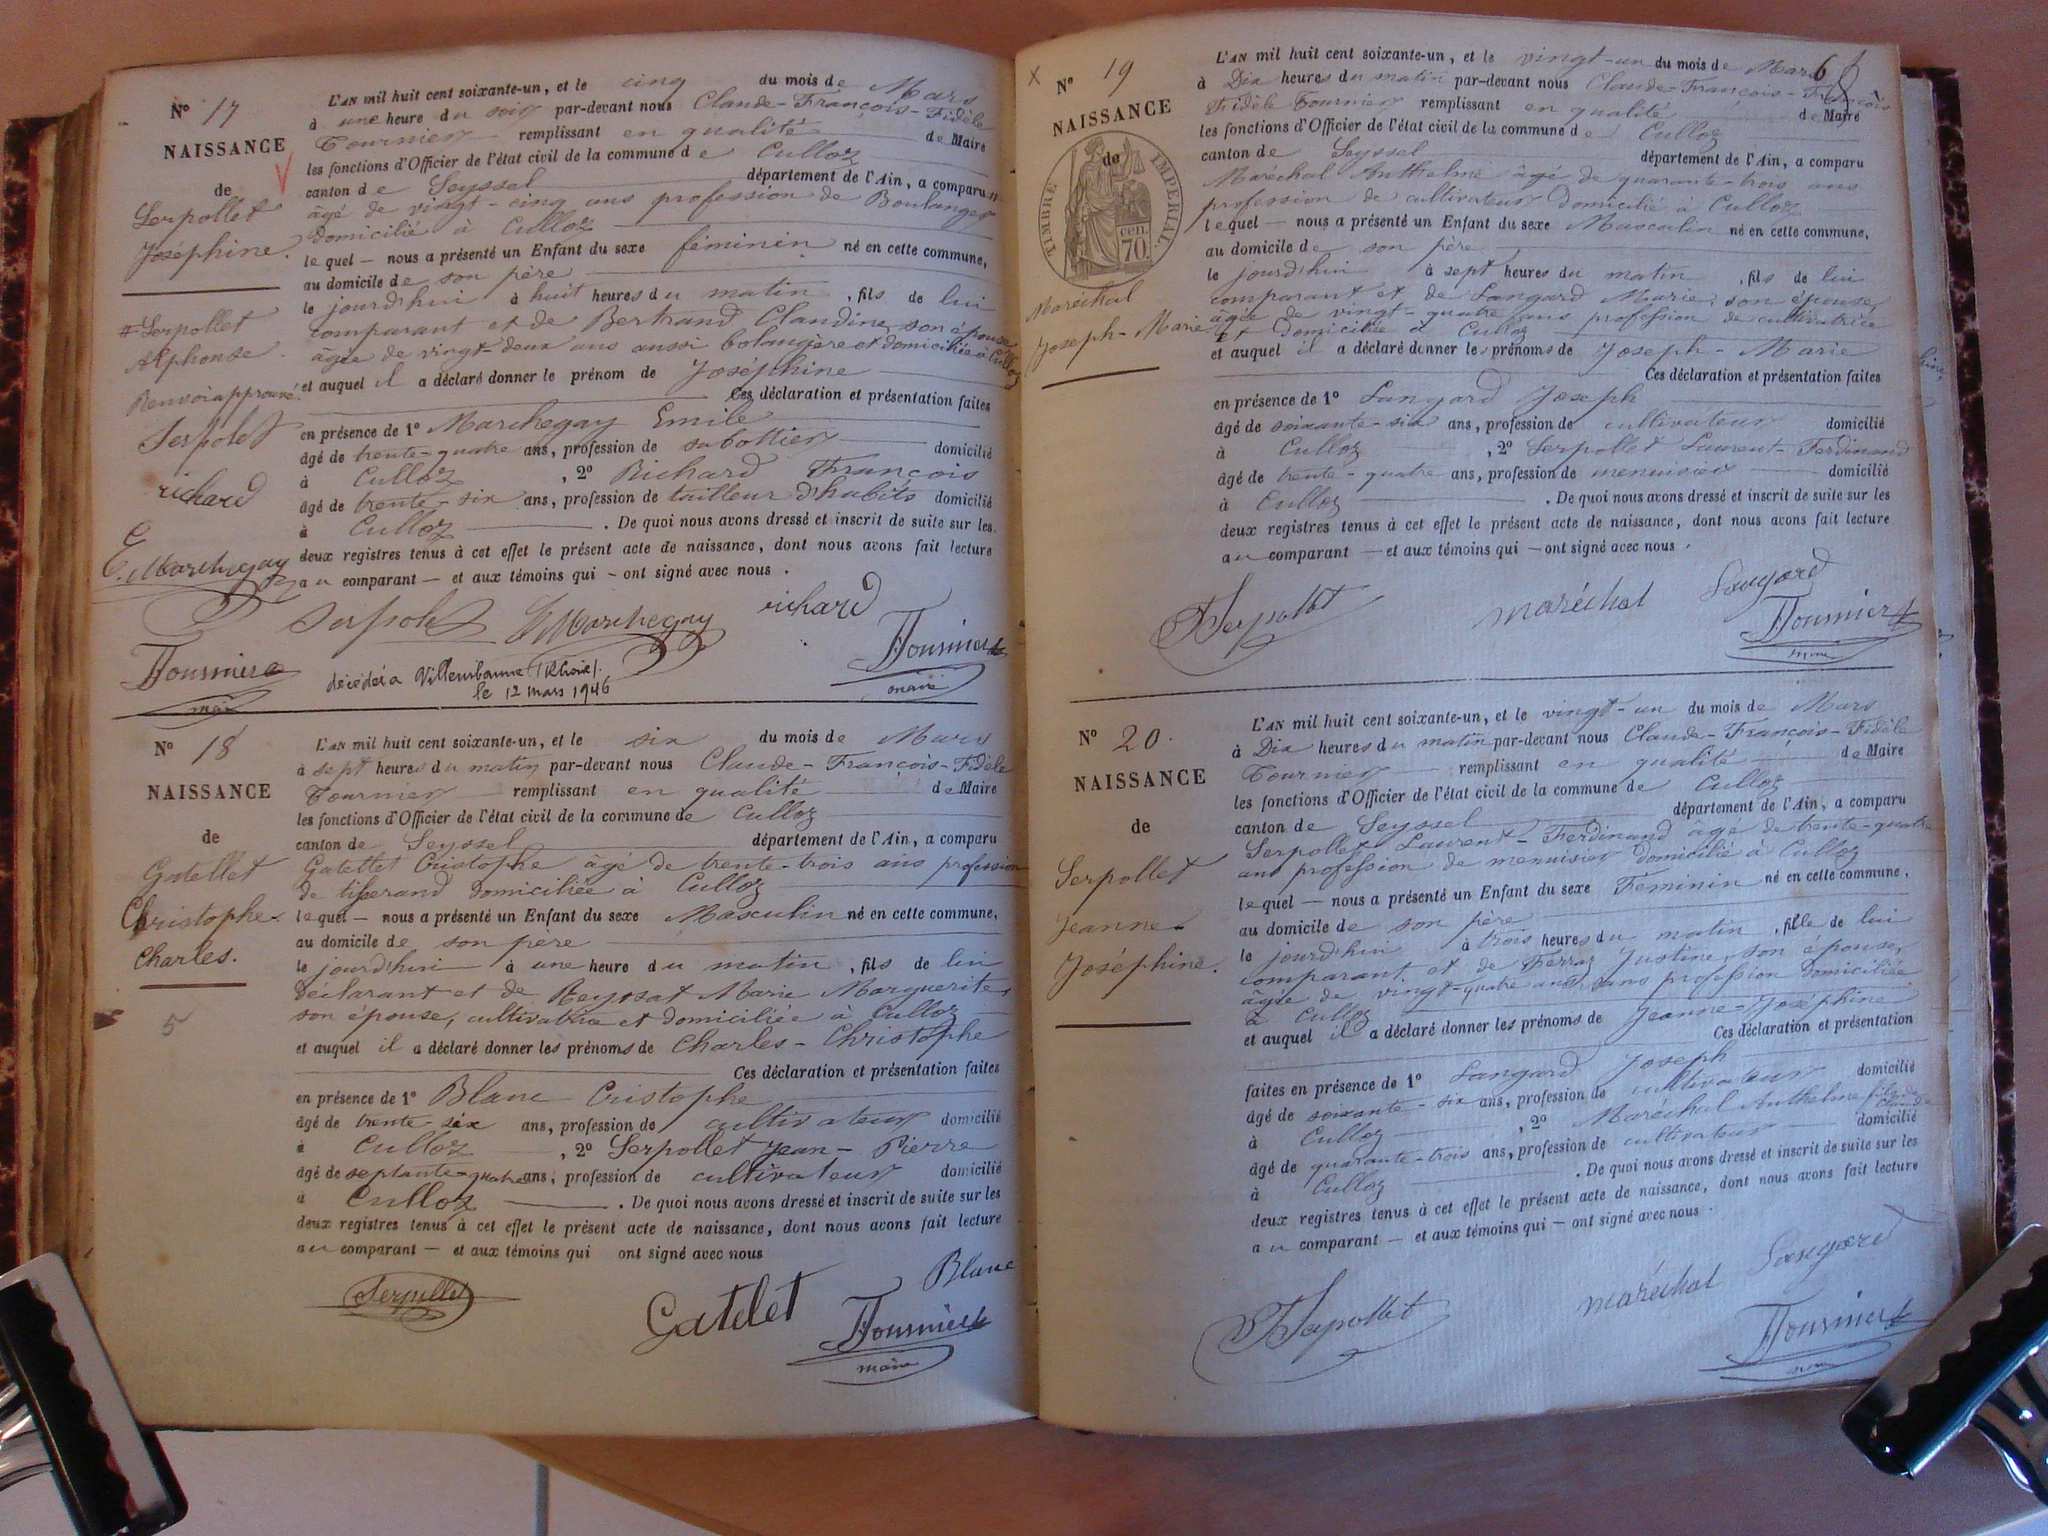 N° 17
NAISSANCE
de
Serpollet
Joséphine.
#Serpollet
Alphonse
Renvoi approuvé.
Serpolet
richard
E. Marchegay
Tournier
maire
L'AN mil huit cent soixante-un, et le cinq du mois de Mars
à une heure du soir par-devant nous Claude-François-Fidèle
Tournier remplissant en qualité de Maire
les fonctions d'Officier de l'état civil de la commune de Culloz
canton de Seyssel département de l'Ain, a comparu #
âgé de vingt-cinq ans profession de Boulanger
Domicilié à Culloz
lequel — nous a présenté un Enfant du sexe féminin né en cette commune,
au domicile de son père
le jourd'hui à huit heures du matin, fils de lui
comparant et de Bertrand Claudine, son épouse
âgée de vingt-deux ans aussi bolangère et domiciliée à Culloz
et auquel il a déclaré donner le prénom de Joséphine
Ces déclaration et présentation faites
en présence de 1° Marchegay Emile
âgé de trente-quatre ans, profession de sabottier domicilié
à Culloz, 2° Richard François
âgé de trente-six ans, profession de tailleur d'habits domicilié
à Culloz. De quoi nous avons dressé et inscrit de suite sur les
deux registres tenus à cet effet le présent acte de naissance, dont nous avons fait lecture
au comparant — et aux témoins qui - ont signé avec nous.
Serpolet E Marchegay richard
Tournier
maire
décédée à Villeurbanne (Rhône).
le 12 mars 1946
N° 18
NAISSANCE
de
Gatellet
Christophe
Charles.
5
L'AN mil huit cent soixante-un, et le six du mois de Mars
à sept heures du matin par-devant nous Claude-François-Fidèle
Tournier remplissant en qualité de Maire
les fonctions d'Officier de l'état civil de la commune de Culloz
canton de Seyssel département de l'Ain, a comparu
Gatellet Cristophe âgé de trente-trois ans profession
de tisserand domiciliée à Culloz
lequel — nous a présenté un Enfant du sexe Masculin né en cette commune,
au domicile de son père
le jourd'hui à une heure du matin, fils de lui
déclarant et de Reyssat Marie Marguerite,
son épouse, cultivatrice et domiciliée à Culloz
et auquel il a déclaré donner les prénoms de Charles-Christophe
Ces déclaration et présentation faites
en présence de 1° Blanc Cristophe
âgé de trente-six ans, profession de cultivateur domicilié
à Culloz, 2° Serpollet Jean-Pierre
âgé de septante-quatre ans, profession de cultivateur domicilié
à Culloz. De quoi nous avons dressé et inscrit de suite sur les
deux registres tenus à cet effet le présent acte de naissance, dont nous avons fait lecture
au comparant — et aux témoins qui ont signé avec nous
Serpollet Gatelet Blanc
Tournier
maire
6
x N° 19
NAISSANCE
de
TIMBRE IMPÉRIAL.
CEN.
70.
Maréchal
Joseph-Marie
L'AN mil huit cent soixante-un, et le vingt-un du mois de Mars
à Dix heures du matin par-devant nous Claude-François-François
Fidèle Tournier remplissant en qualité de Maire
les fonctions d'Officier de l'état civil de la commune de Culloz
canton de Seyssel département de l'Ain, a comparu
Maréchal Anthelme âgé de quarante-trois ans
profession de cultivateur Domicilié à Culloz
lequel — nous a présenté un Enfant du sexe Masculin né en cette commune,
au domicile de son père
le jourd'hui à sept heures du matin, fils de lui
comparant et de Langard Marie, son épouse,
âgée de vingt-quatre ans profession de cultivatrice
et Domiciliée à Culloz
et auquel il a déclaré donner les prénoms de Joseph-Marie
Ces déclaration et présentation faites
en présence de 1° Langard Joseph
âgé de soixante-six ans, profession de cultivateur domicilié
à Culloz, 2° Serpollet Laurent-Ferdinand
âgé de trente-quatre ans, profession de menuisier domicilié
à Culloz. De quoi nous avons dressé et inscrit de suite sur les
deux registres tenus à cet effet le présent acte de naissance, dont nous avons fait lecture
au comparant — et aux témoins qui — ont signé avec nous.
Serpollet maréchal Langard
Tournier
maire
N° 20
NAISSANCE
de
Serpollet
Jeanne
Joséphine.
L'AN mil huit cent soixante-un, et le vingt-un du mois de Mars
à Dix heures du matin par-devant nous Claude-François-Fidèle
Tournier remplissant en qualité de Maire
les fonctions d'Officier de l'état civil de la commune de Culloz
canton de Seyssel département de l'Ain, a comparu
Serpollet Laurent-Ferdinand âgé de trente-quatre
ans profession de menuisier domicilié à Culloz
lequel — nous a présenté un Enfant du sexe Féminin né en cette commune,
au domicile de son père
le jourd'hui à trois heures du matin, fille de lui
comparant et de Ferraz Justine, son épouse,
âgée de vingt-quatre ans, sans profession domiciliée
à Culloz
et auquel il a déclaré donner les prénoms de Jeanne-Joséphine
Ces déclaration et présentation
faites en présence de 1° Langard Joseph
âgé de soixante-six ans, profession de cultivateur domicilié
à Culloz, 2° Maréchal Anthelme fils de Claude
âgé de quarante-trois ans, profession de cultivateur domicilié
à Culloz. De quoi nous avons dressé et inscrit de suite sur les
deux registres tenus à cet effet le présent acte de naissance, dont nous avons fait lecture
au comparant — et aux témoins qui — ont signé avec nous.
Serpollet maréchal Langard
Tournier
maire